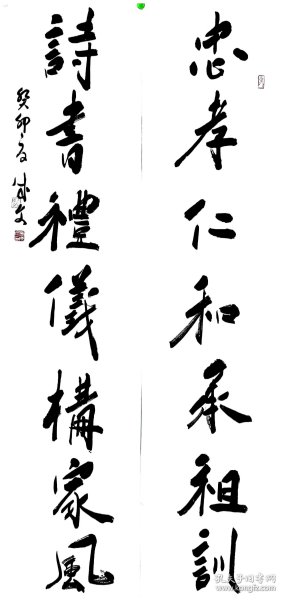 忠孝仁和承祖訓
詩書禮儀構家風
癸卯夏 成文
孔夫子旧书网